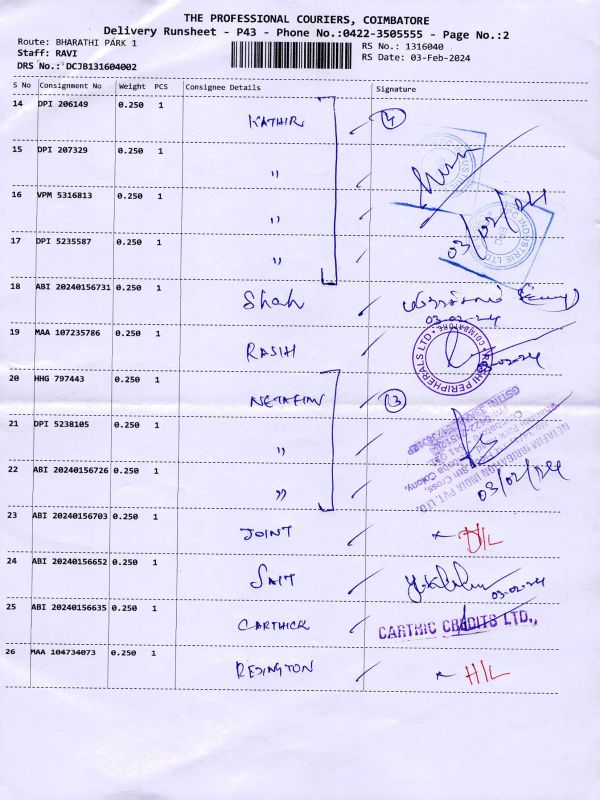 THE PROFESSIONAL COURIERS, COIMBATORE
Delivery Runsheet - P43 - Phone No.:0422-3505555 - Page No.:2
Route: BHARATHI PARK 1
Staff: RAVI
DRS No.: DCJB131604002
RS No.: 1316040
RS Date: 03-Feb-2024
S No Consignment No Weight PCS Consignee Details Signature
14 DPI 206149 0.250 1 KATHIR 4
15 DPI 207329 0.250 1 "
16 VPM 5316813 0.250 1 "
17 DPI 5235587 0.250 1 "
03/02/24
18 ABI 20240156731 0.250 1 Shah
03-02-24
19 MAA 107235786 0.250 1 RASHI
RASHI PERIPHERALS LTD. COIMBATORE
20 HHG 797443 0.250 1 NETAFIM 3
21 DPI 5238105 0.250 1 "
NETAFIM IRRIGATION INDIA PVT. LTD.
22 ABI 20240156726 0.250 1 "
03/02/24
23 ABI 20240156703 0.250 1 JOINT D/L
24 ABI 20240156652 0.250 1 SAIT
03-02-24
25 ABI 20240156635 0.250 1 CARTHICK
CARTHIC CREDITS LTD.,
26 MAA 104734073 0.250 1 REDINGTON H/L